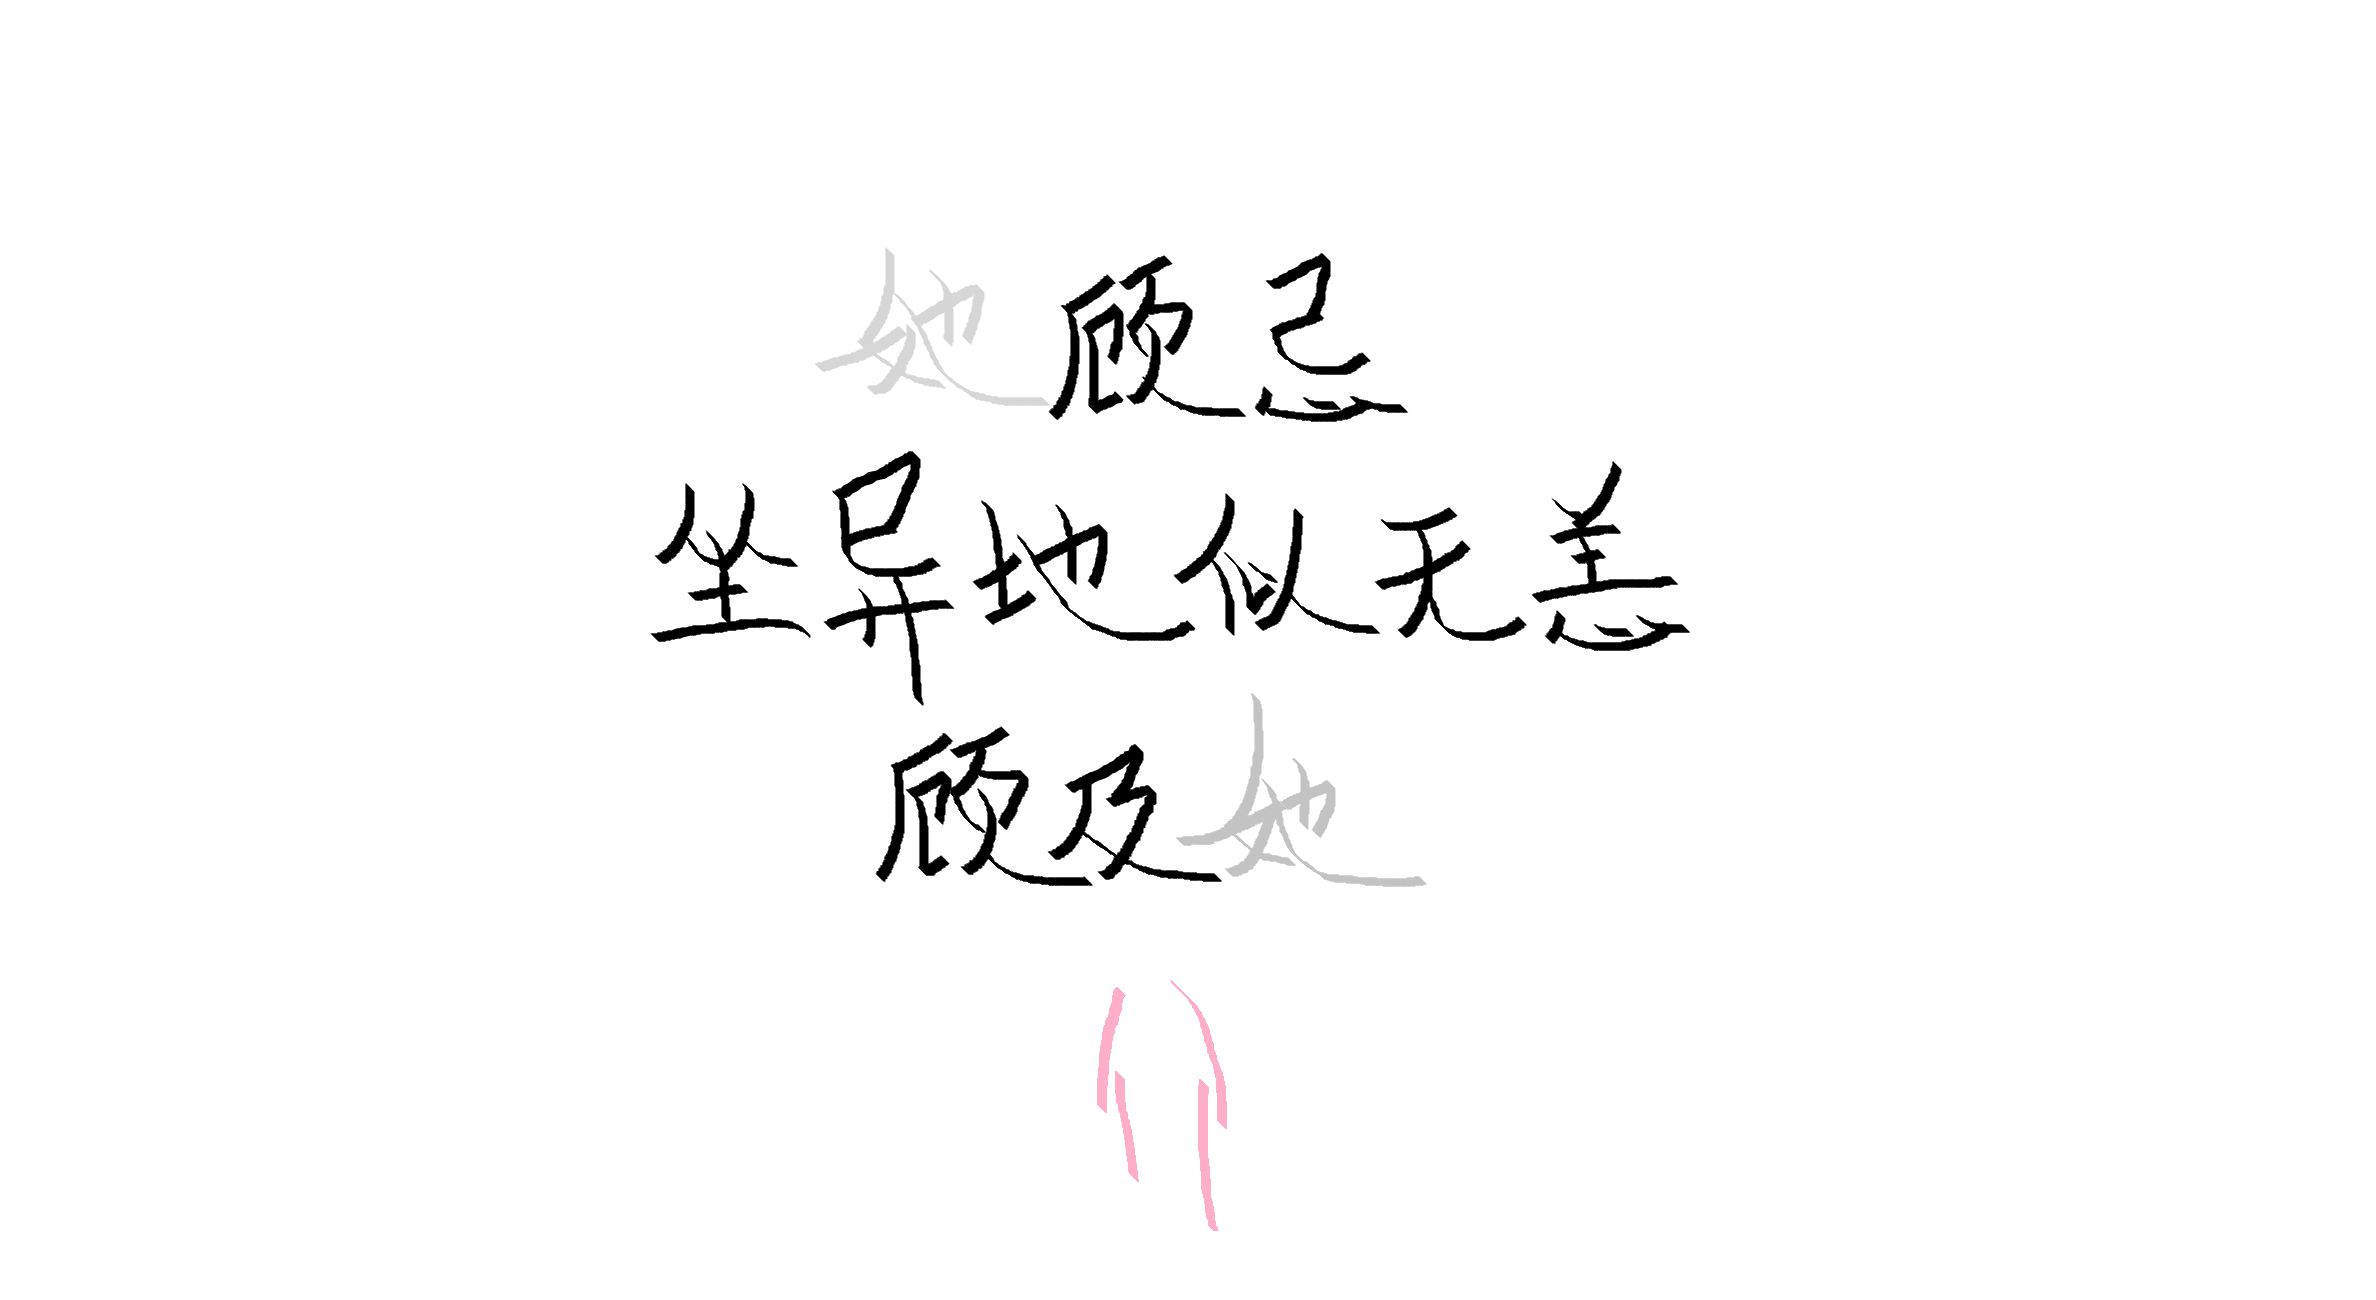 她顾忌
坐异地似无恙
顾及她